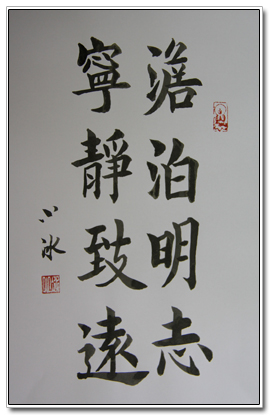 澹泊明志
寧靜致遠
冰